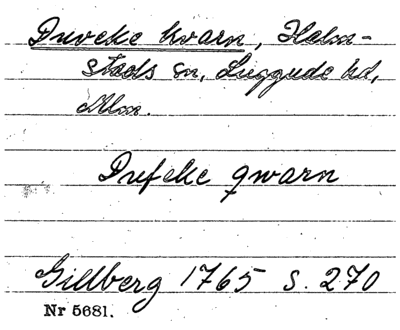 Duveke kvarn, Halm-
stads sn, Luggude hd,
Mlm.
Dufeke qwarn
Gillberg 1765 s. 270
Nr 5681.